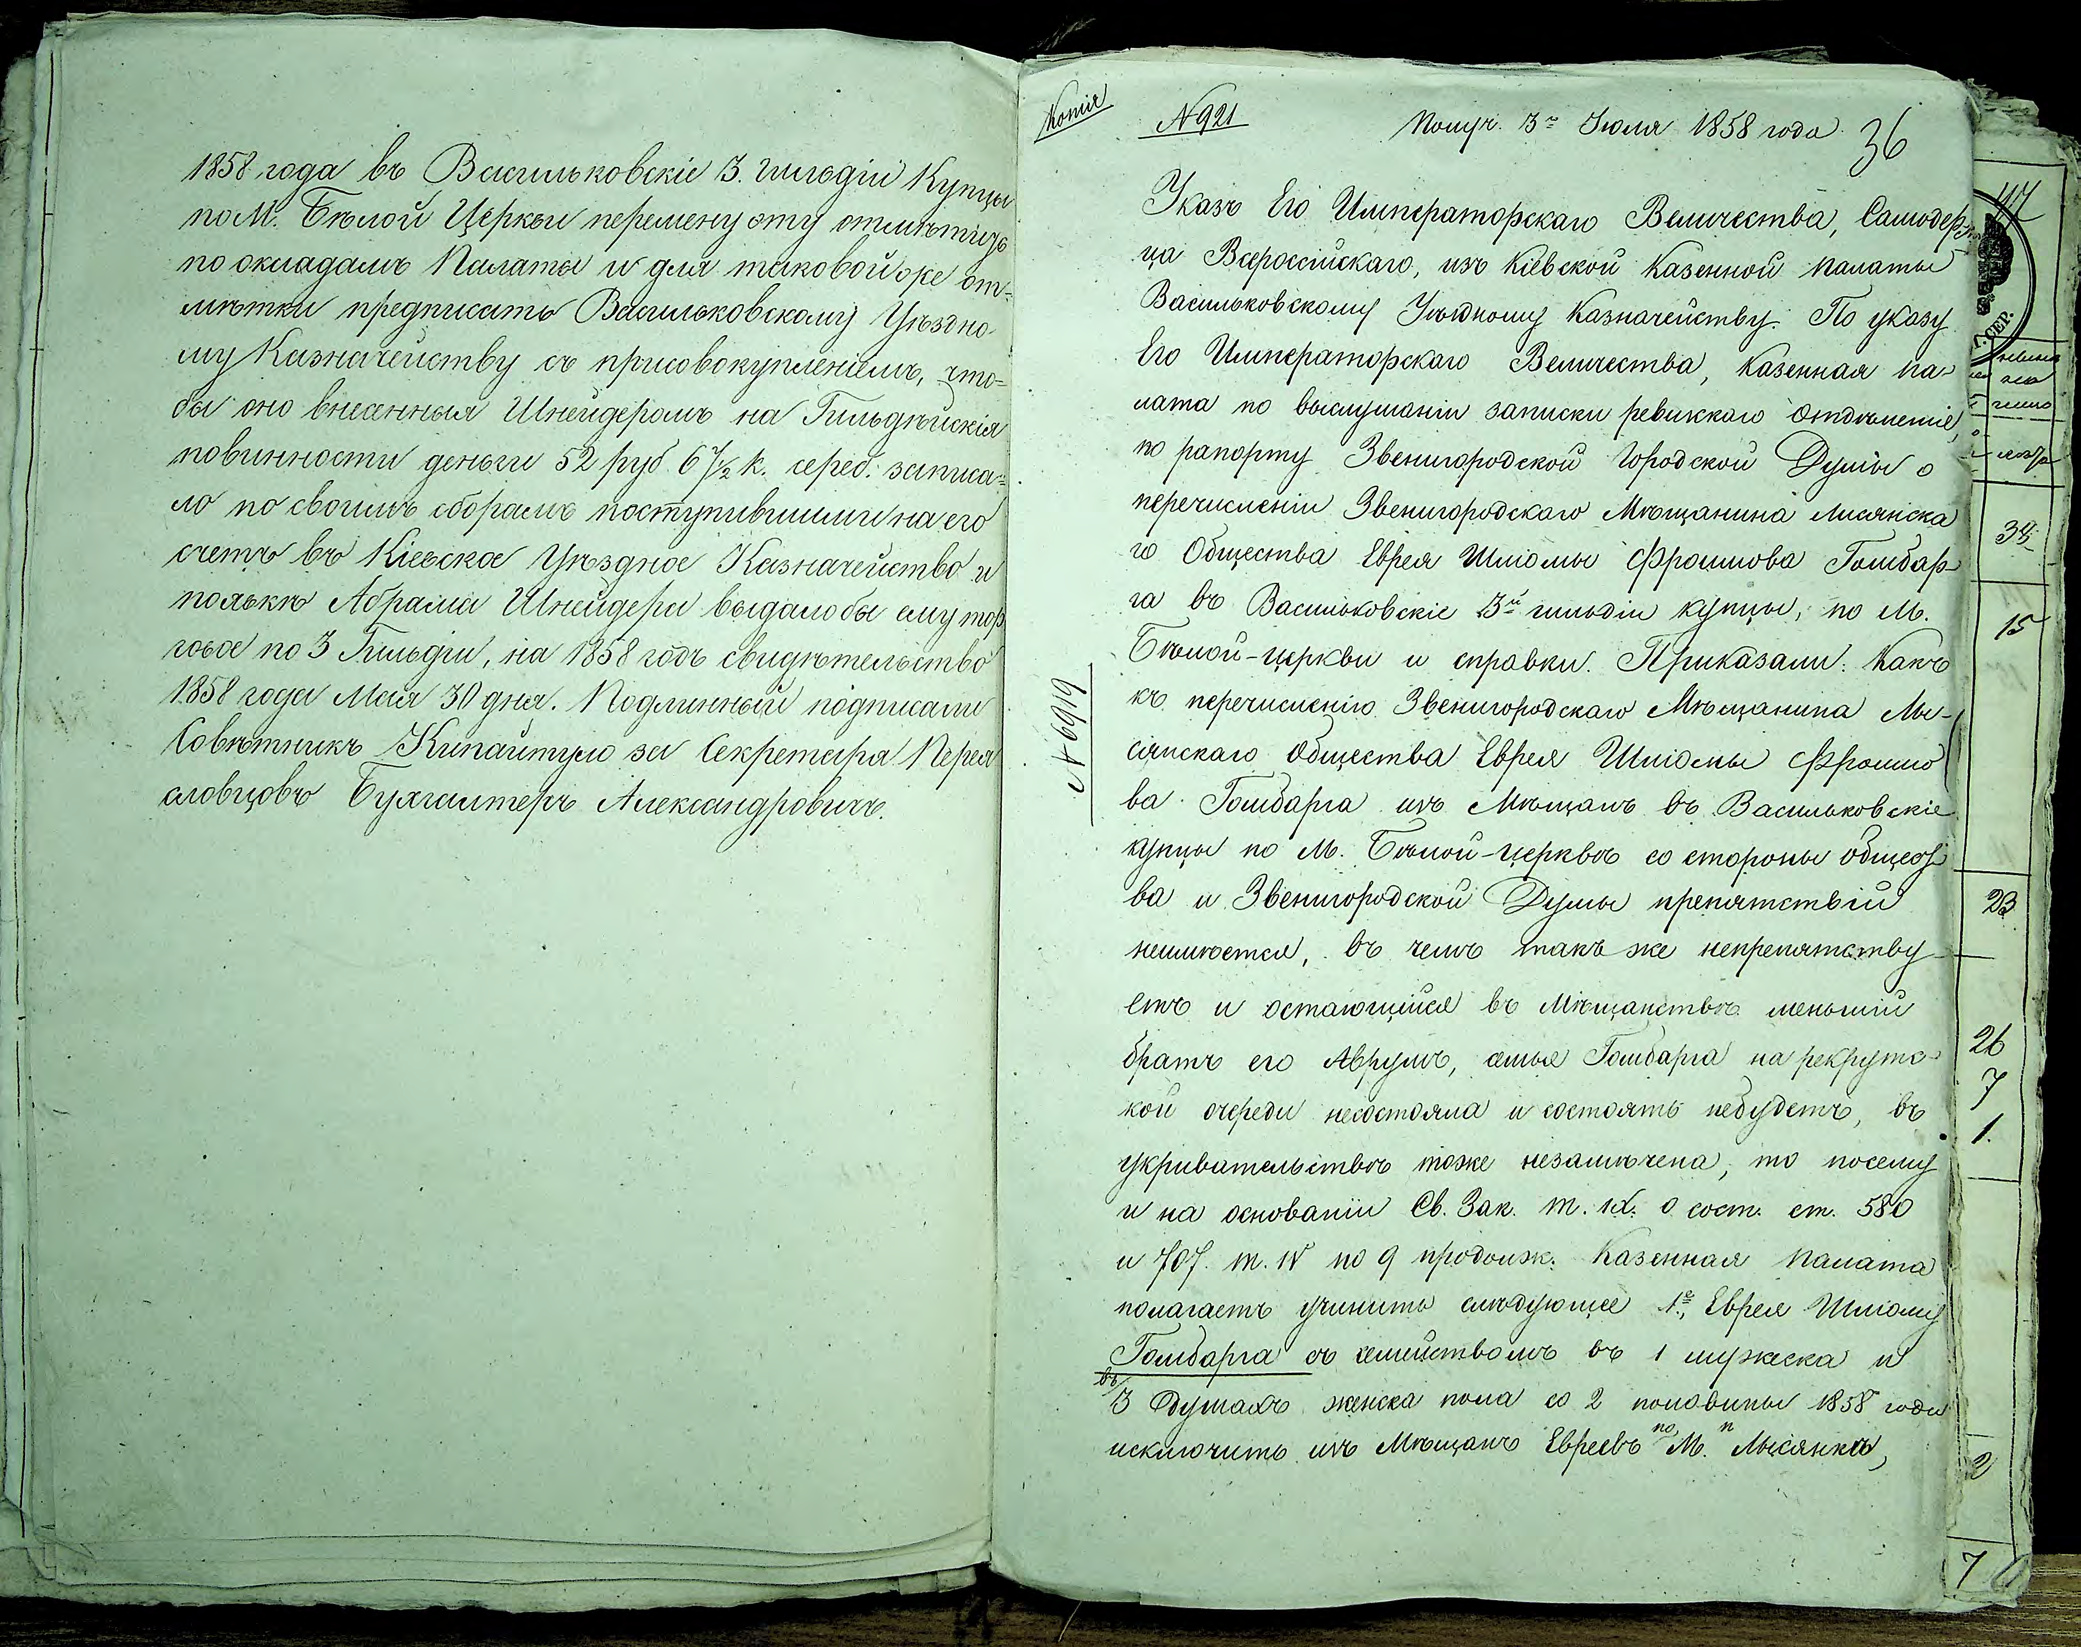 1858 года въ Васильковскіе 3. гильдіи Купцы
по М. Бѣлой Церкви перемену эту отмѣтить
по окладамъ Палаты и для таковой же от-
мѣтки предписать Васильковскому Уѣздно-
му Казначейству съ присовокупленіемъ, что-
бы оно внесенныя Шнейдеромъ на Гильдѣйскія
повинности деньги 52 руб. 67½ к. сереб: записа-
ло по своимъ сборамъ поступившими на его
счетъ въ Кіевское Уѣздное Казначейство и
Абрама Шнейдера выдало бы ему тор
говое по 3 Гильдіи, на 1858 годъ свидѣтельство
1858 года Мая 30 дня. Подлинный подписали
Совѣтникъ за Секретаря Перея
словцовъ Бухгалтеръ Александровичъ.
Копія
№ 921
Получ. 3го Іюля 1858 года
36
Указъ Его Императорскаго Величества, Самодерж
ца Всероссійскаго, изъ Кіевской Казенной Палаты
Васильковскому Уѣздному Казначейству. По указу
Его Императорскаго Величества, Казенная Па-
лата по выслушаніи записки ревизскаго Отдѣленія,
по рапорту Звенигородской Городской Думы о
перечисленіи Звенигородскаго Мѣщанина Лисянска
го Общества Еврея Шліомы Фроимова Гомбар
га въ Васильковскіе 3й гильдіи купцы, по М.
Бѣлой-церкви и справки. Приказали: Какъ
къ перечисленію Звенигородскаго Мѣщанина Лы-
сянскаго Общества Еврея Шліомы Фроимо
ва Гомбарга изъ Мѣщанъ въ Васильковскіе
купцы по М. Бѣлой-церквѣ со стороны общест
ва и Звенигородской Думы препятствій
неимѣется, въ чемъ такъ же непрепятству
етъ и остающійся въ Мѣщанствѣ меньшій
братъ его Аврумъ, семья Гомбарга на рекрутс-
кой очереди несостояла и состоять небудетъ, въ
укривательствѣ тоже незамѣчена, то посему
и на основаніи Св. Зак. т. IX. о сост. ст. 580
и 707. т. IV по 9 продолж. Казенная Палата
полагаетъ учинить слѣдующее 1е, Еврея Шліому
Гомбарга съ семействомъ въ 1 мужеска и
въ 3 душахъ женска пола со 2 половины 1858 года
исключить изъ Мѣщанъ Евреевъ по М. Лысянкѣ,
№ 6919
47
Г. СЕР.
34
15
23
26
7
1.
2
7